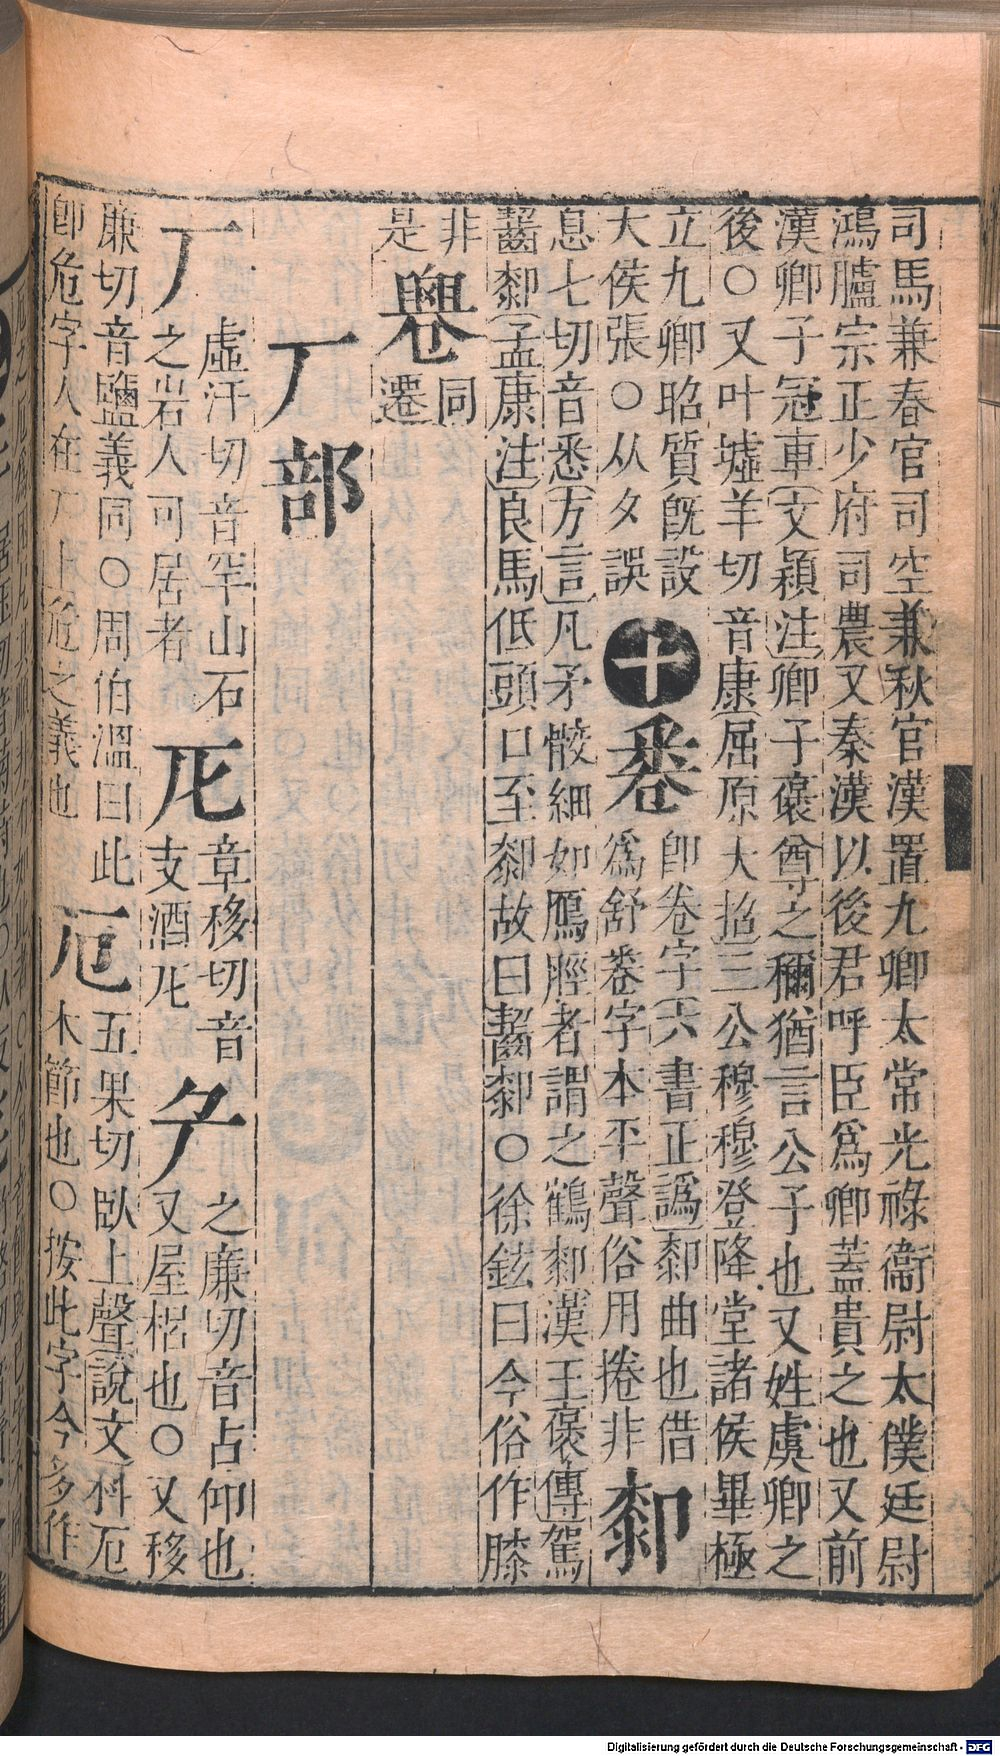 司馬兼春官司空兼秋官漢置九卿太常光祿衞尉太僕廷尉
鴻臚宗正少府司農又秦漢以後君呼臣爲卿蓋貴之也又前
漢卿子冠軍文穎注卿子褒尊之稱猶言公子也又姓虞卿之
後○又叶墟羊切音康屈原大招三公穆穆登降堂諸侯畢極
立九卿昭質旣設
大侯張○从夕誤
十
𢍏
卽卷字六書正譌厀曲也借
爲舒𢍏字本平聲俗用捲非
厀
息七切音悉方言凡矛骹細如鴈脛者謂之鶴厀漢王褒傳駕
齧厀孟康注良馬低頭口至厀故曰齧厀○徐鉉曰今俗作膝
非
是
䙴
同
遷
厂部
厂
虛汗切音罕山石
之岩人可居者
卮
章移切音
支酒卮
厃
之廉切音占仰也
又屋梠也○又移
廉切音鹽義同○周伯溫曰此
卽危字人在厂上危之義也
厄
五果切臥上聲說文科厄
木節也○按此字今多作
Digitalisierung gefördert durch die Deutsche Forschungsgemeinschaft - DFG